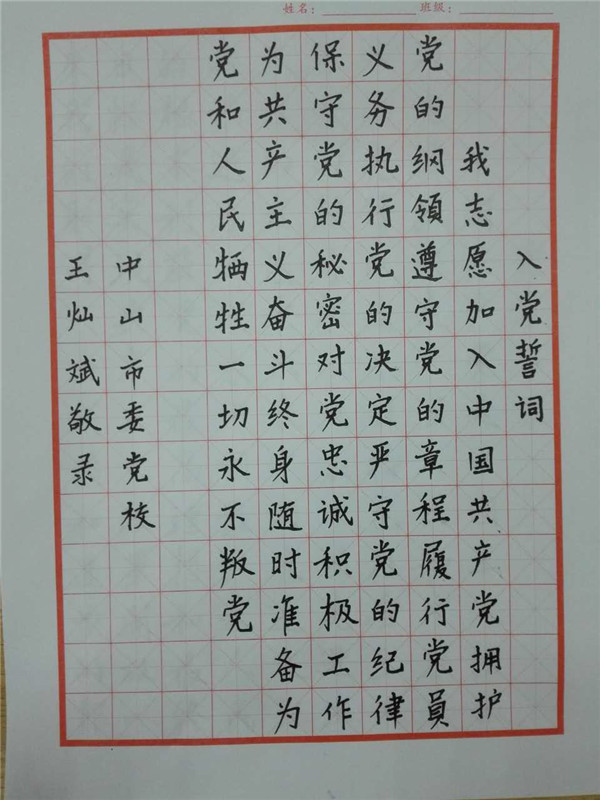 姓名： 班级：
入党誓词
我志愿加入中国共产党拥护
党的纲領遵守党的章程履行党員
义务执行党的决定严守党的纪律
保守党的秘密对党忠诚积极工作
为共产主义奋斗终身随时准备为
党和人民牺牲一切永不叛党
中山市委党校
王灿斌敬录